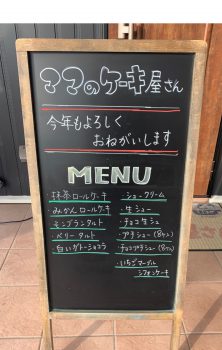 ママのケーキ屋さん
今年もよろしく
おねがいします
MENU
・抹茶ロールケーキ
・みかんロールケーキ
・モンブランタルト
・ベリータルト
・白いガトーショコラ
・シュークリーム
・生シュー
・チョコ生シュー
・プチシュー(8ケ入)
・チョコプチシュー(8ケ入)
・いちごマーブル
シフォンケーキ